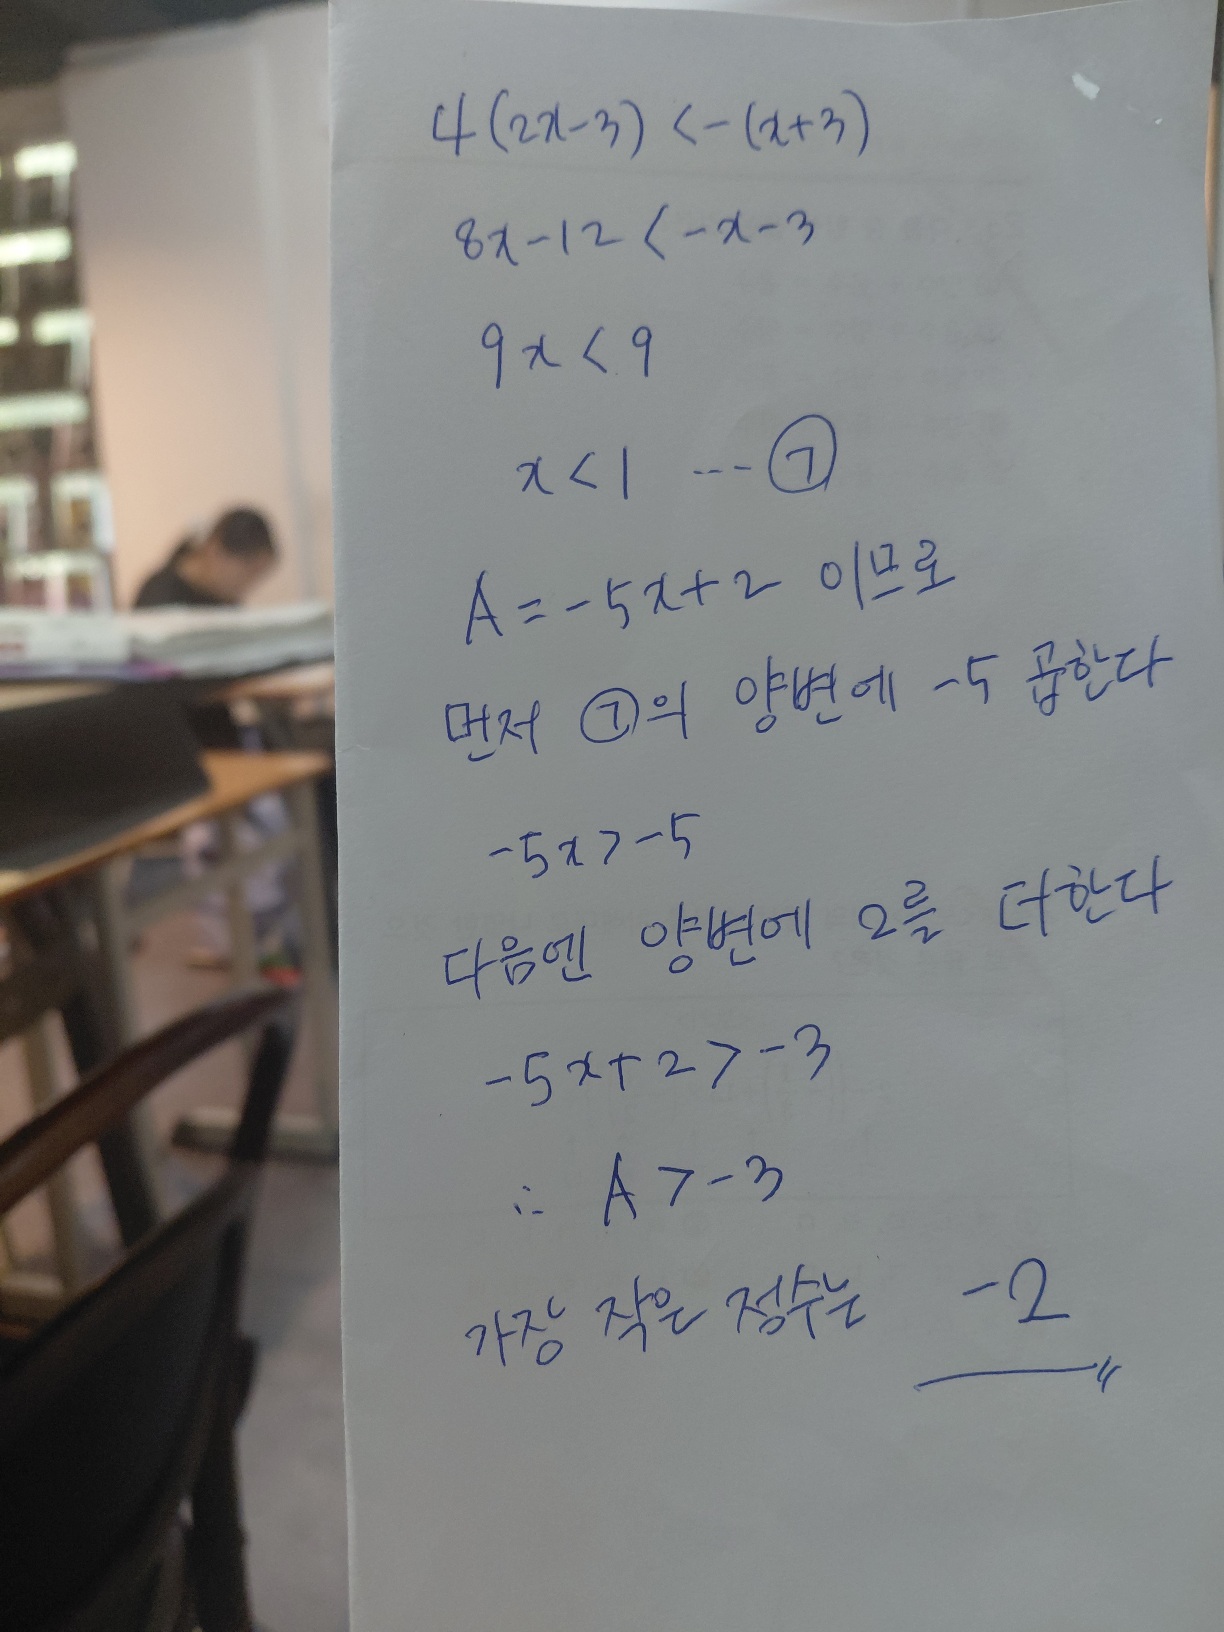 4(2x-3) < -(x+3)
8x-12 < -x-3
9x < 9
x < 1 --- ㉠
A = -5x+2 이므로
먼저 ㉠의 양변에 -5 곱한다
-5x > -5
다음엔 양변에 2를 더한다
-5x+2 > -3
∴ A > -3
가장 작은 정수는 -2